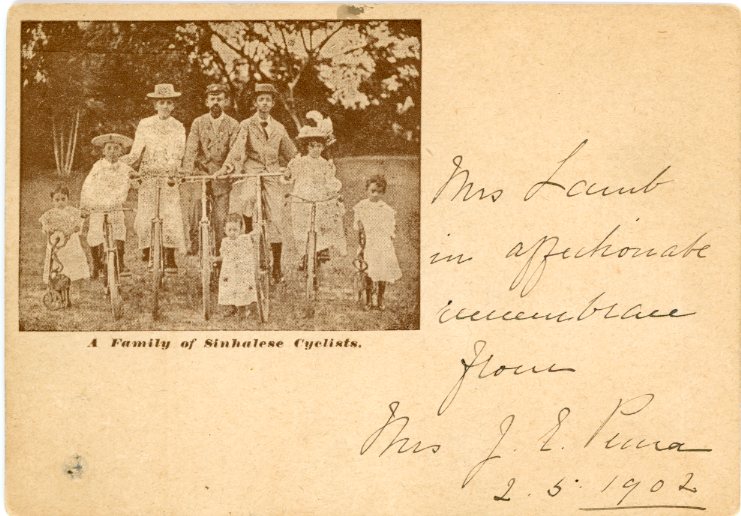 A Family of Sinhalese Cyclists.
Mrs Lamb
in affectionate
remembrance
from
Mrs J. E.
2. 5. 1902